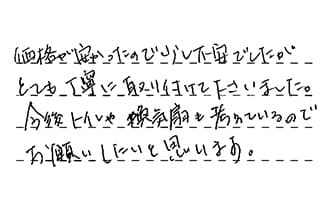 価格が安かったので少し不安でしたが
とても丁寧に取り付けて下さいました。
今後トイレや換気扇も考えているので
お願いしたいと思います。